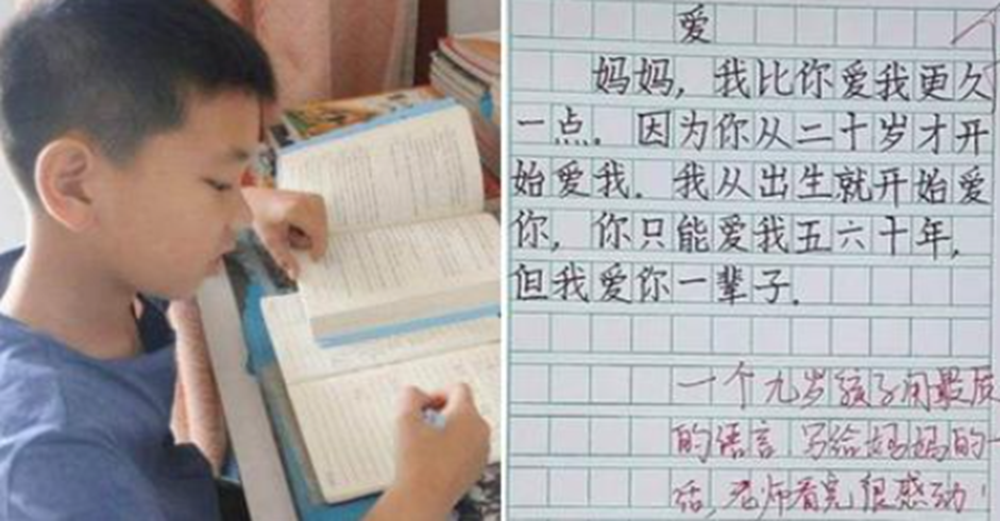 爱
妈妈，我比你爱我更久
一点。因为你从二十岁才开
始爱我．我从出生就开始爱
你，你只能爱我五六十年，
但我爱你一辈子．
一个九岁孩子用最质
的语言 写给妈妈的一
话，老师看完很感动！